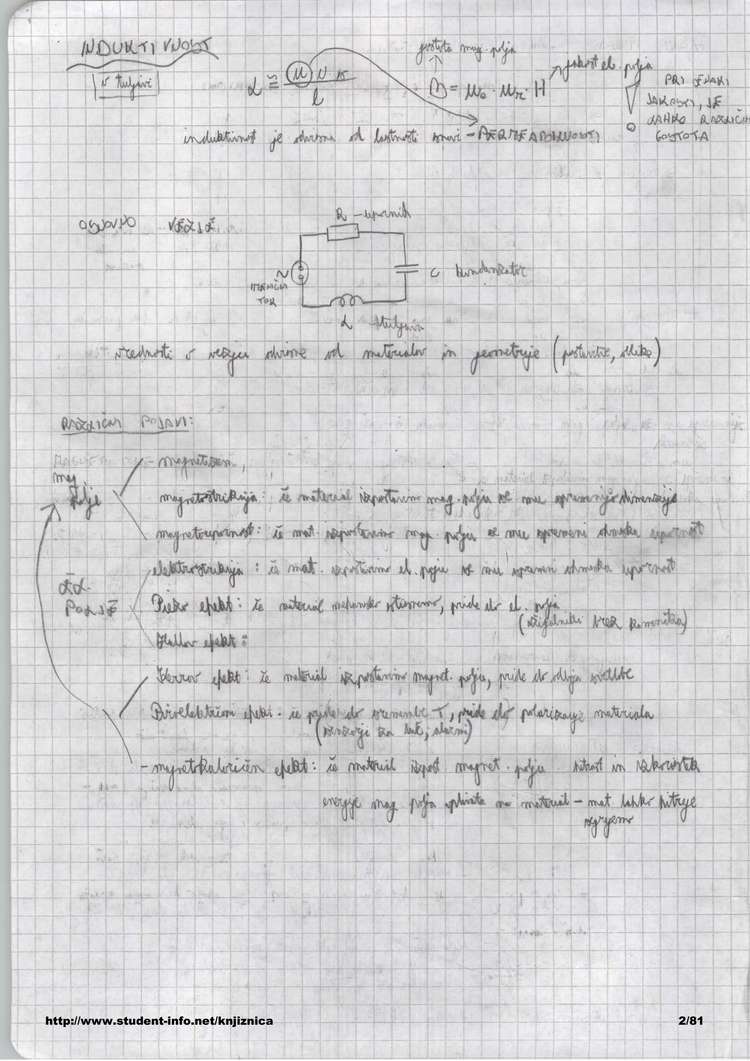 INDUKTIVNOST
v tuljavi
gostota mag. polja
jakost el. polja
L ≅ μ N
l
B = μ₀ · μr · H
PRI ENAKI
JAKOSTI, JE
LAHKO RAZLIČN
GOSTOTA
induktivnost je odvisna od lastnosti snovi - PERMEABILNOSTI
OSNOVNO VEZJE
R - upornik
~
C kondenzator
L tuljava
vrednosti v vezju odvisne od materialov in geometrije (postavitve, oblike)
RAZLIČNI POJAVI:
mag
polje
- magnetizem,
magnetostrikcija: če material izpostavimo mag. polju se mu spremenijo dimenzije
magnetoupornost: če mat. izpostavimo mag polju se mu spremeni ohmska upornost
EL.
POLJE
elektrostrikcija: če mat. izpostavimo el. polju se mu spremeni ohmska upornost
Piezo efekt: če material mehansko stisnemo, pride do el. polja
(vžigalniki brez kamenčka)
Hallov efekt:
Kerrov efekt: če material izpostavimo magnet. polju, pride do odboja svetlobe
Piroelektrični efekt: če pride do spremembe T, pride do polarizacije materiala
(senzorji za luč, alarmi)
- magnetokaloričen efekt: če material izpost magnet. polju hitrost in izkoristek
energije mag polja vplivata na material - mat lahko hitreje
segrejemo
http://www.student-info.net/knjiznica
2/81